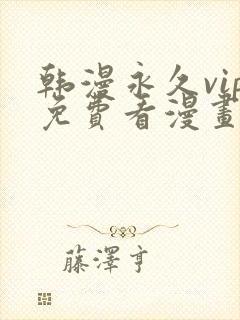 韩漫永久vip
免費看漫畫
藤澤亨